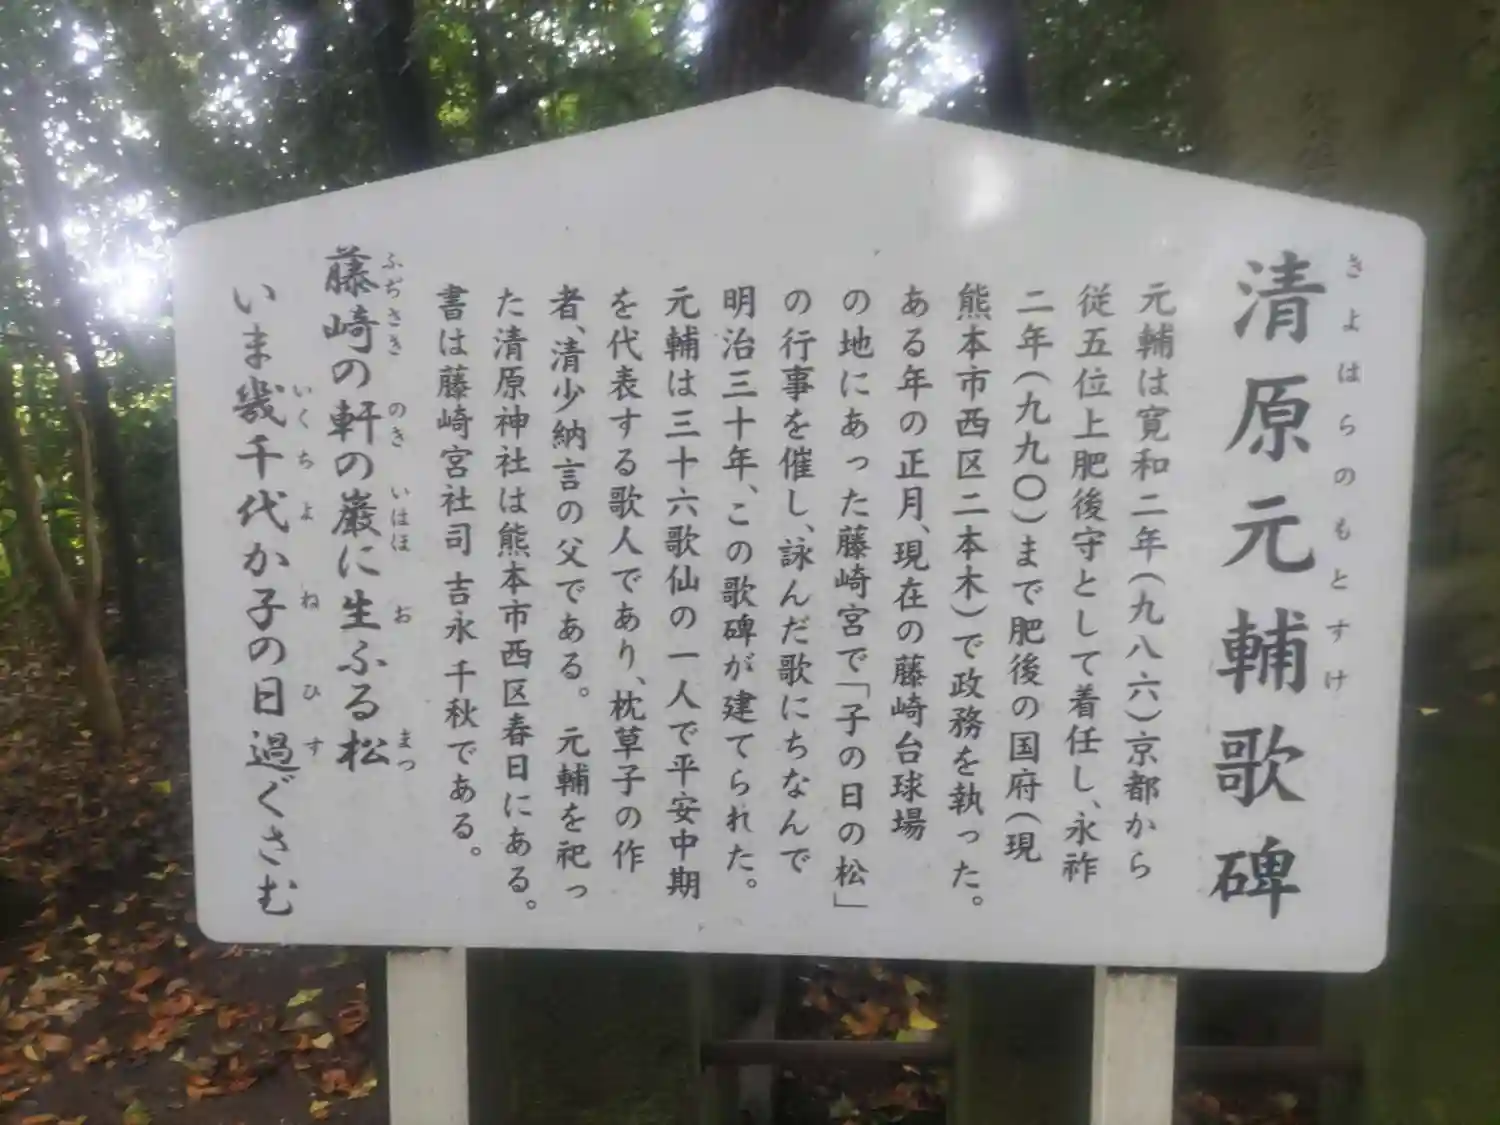 清原元輔歌碑
きよはらのもとすけ
元輔は寛和二年(九八六)京都から
従五位上肥後守として着任し、永祚
二年(九九〇)まで肥後の国府(現
熊本市西区二本木)で政務を執った。
ある年の正月、現在の藤崎台球場
の地にあった藤崎宮で「子の日の松」
の行事を催し、詠んだ歌にちなんで
明治三十年、この歌碑が建てられた。
元輔は三十六歌仙の一人で平安中期
を代表する歌人であり、枕草子の作
者、清少納言の父である。元輔を祀っ
た清原神社は熊本市西区春日にある。
書は藤崎宮社司 吉永千秋である。
藤崎の軒の巌に生ふる松
ふぢさき のき いはほ お まつ
いま幾千代か子の日過ぐさむ
いくちよ ね ひ す